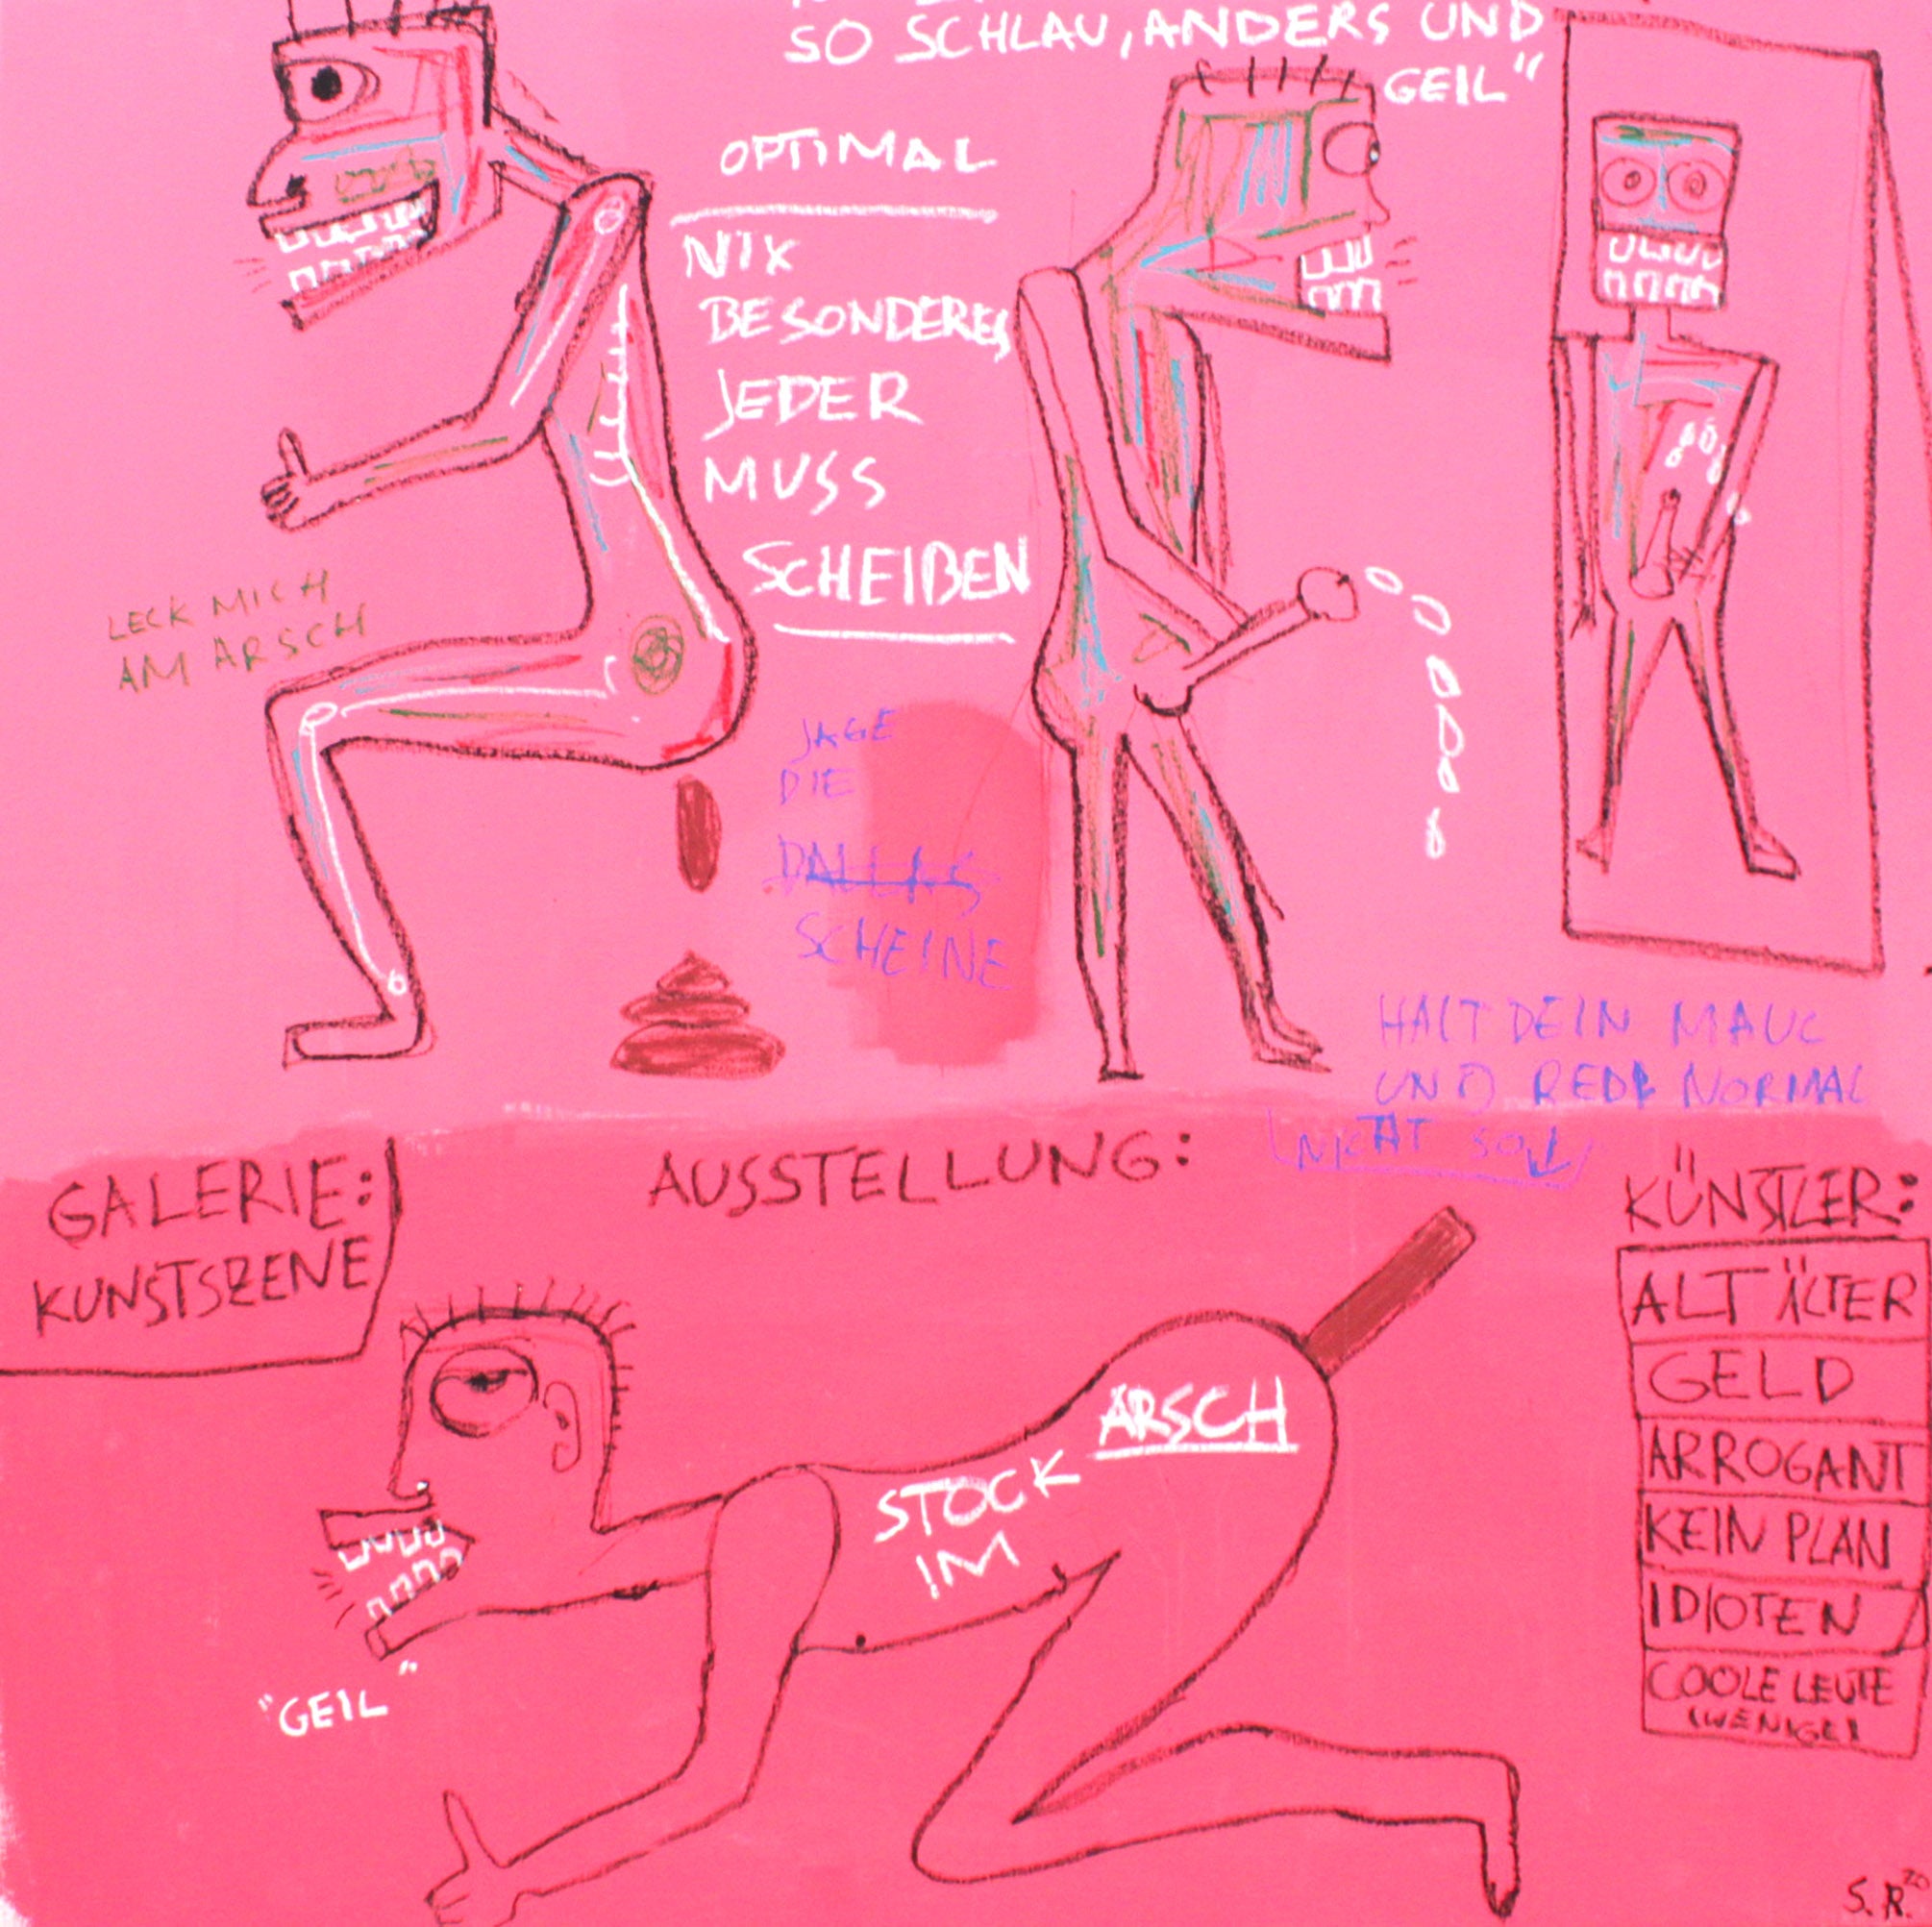 SO SCHLAU, ANDERS UND
GEIL"
OPTIMAL
NIX
BESONDERES
JEDER
MUSS
SCHEIßEN
LECK MICH
AM ARSCH
JAGE
DIE
DALLAS
SCHEINE
HALT DEIN MAUL
UND REDE NORMAL
NICHT SO
GALERIE:
KUNSTSZENE
AUSSTELLUNG:
KÜNSTLER:
ALT ÄLTER
GELD
ARROGANT
KEIN PLAN
IDIOTEN
COOLE LEUTE
(WENIGE)
STOCK
IM
ARSCH
"GEIL"
S.R. 20